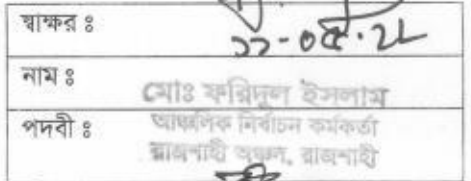 স্বাক্ষর ঃ
১১-০৫-২৮
নাম ঃ
মোঃ ফরিদুল ইসলাম
পদবী ঃ
আঞ্চলিক নির্বাচন কর্মকর্তা
রাজশাহী অঞ্চল, রাজশাহী